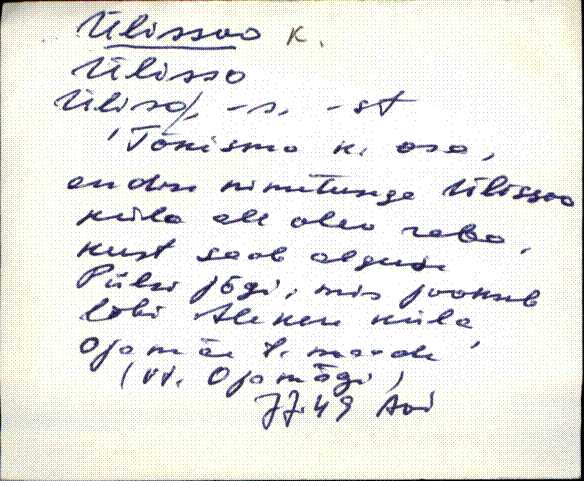 Ülissoo k.
Ülisso
Üliso/, -s, -st
Tõnisma k. osa,
endise nimetusega Ülissoo
küla all olev raba,
kust saab alguse
Pülsi jõgi, mis jookseb
läbi Alekere küla,
Ojamäe t. maade
(vt. Ojamägi)
JJ. 49 Avi